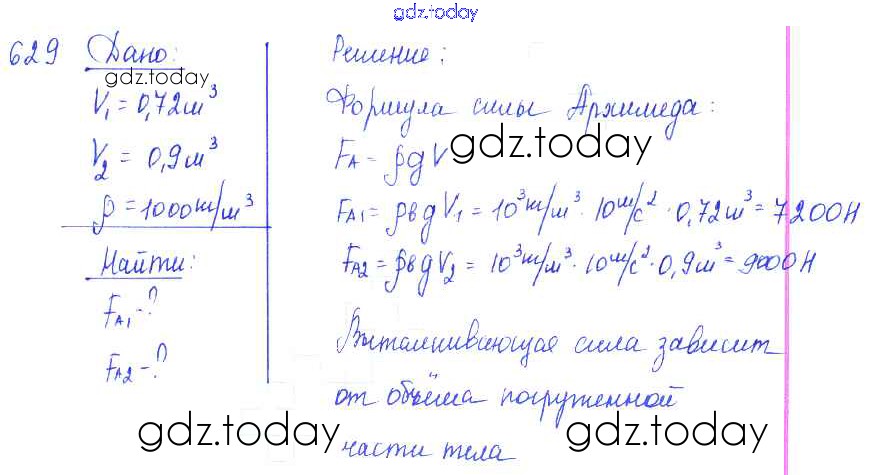 gdz.today
629 Дано:
gdz.today
V₁ = 0,72 м³
V₂ = 0,9 м³
ρ = 1000 кг/м³
Найти:
F_A1 - ?
F_A2 - ?
Решение:
Формула силы Архимеда:
F_A = ρgV gdz.today
F_A1 = ρвgV₁ = 10³ кг/м³ · 10 м/с² · 0,72 м³ = 7200Н
F_A2 = ρвgV₂ = 10³ кг/м³ · 10 м/с² · 0,9 м³ = 9000Н
Выталкивающая сила зависит
от объёма погруженной
части тела
gdz.today gdz.today